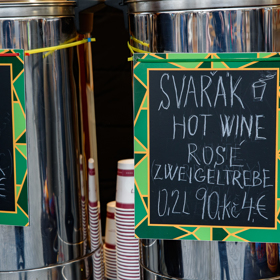 SVAŘÁK
HOT WINE
ROSÉ
ZWEIGELTREBE
0,2L 90,-Kč 4€